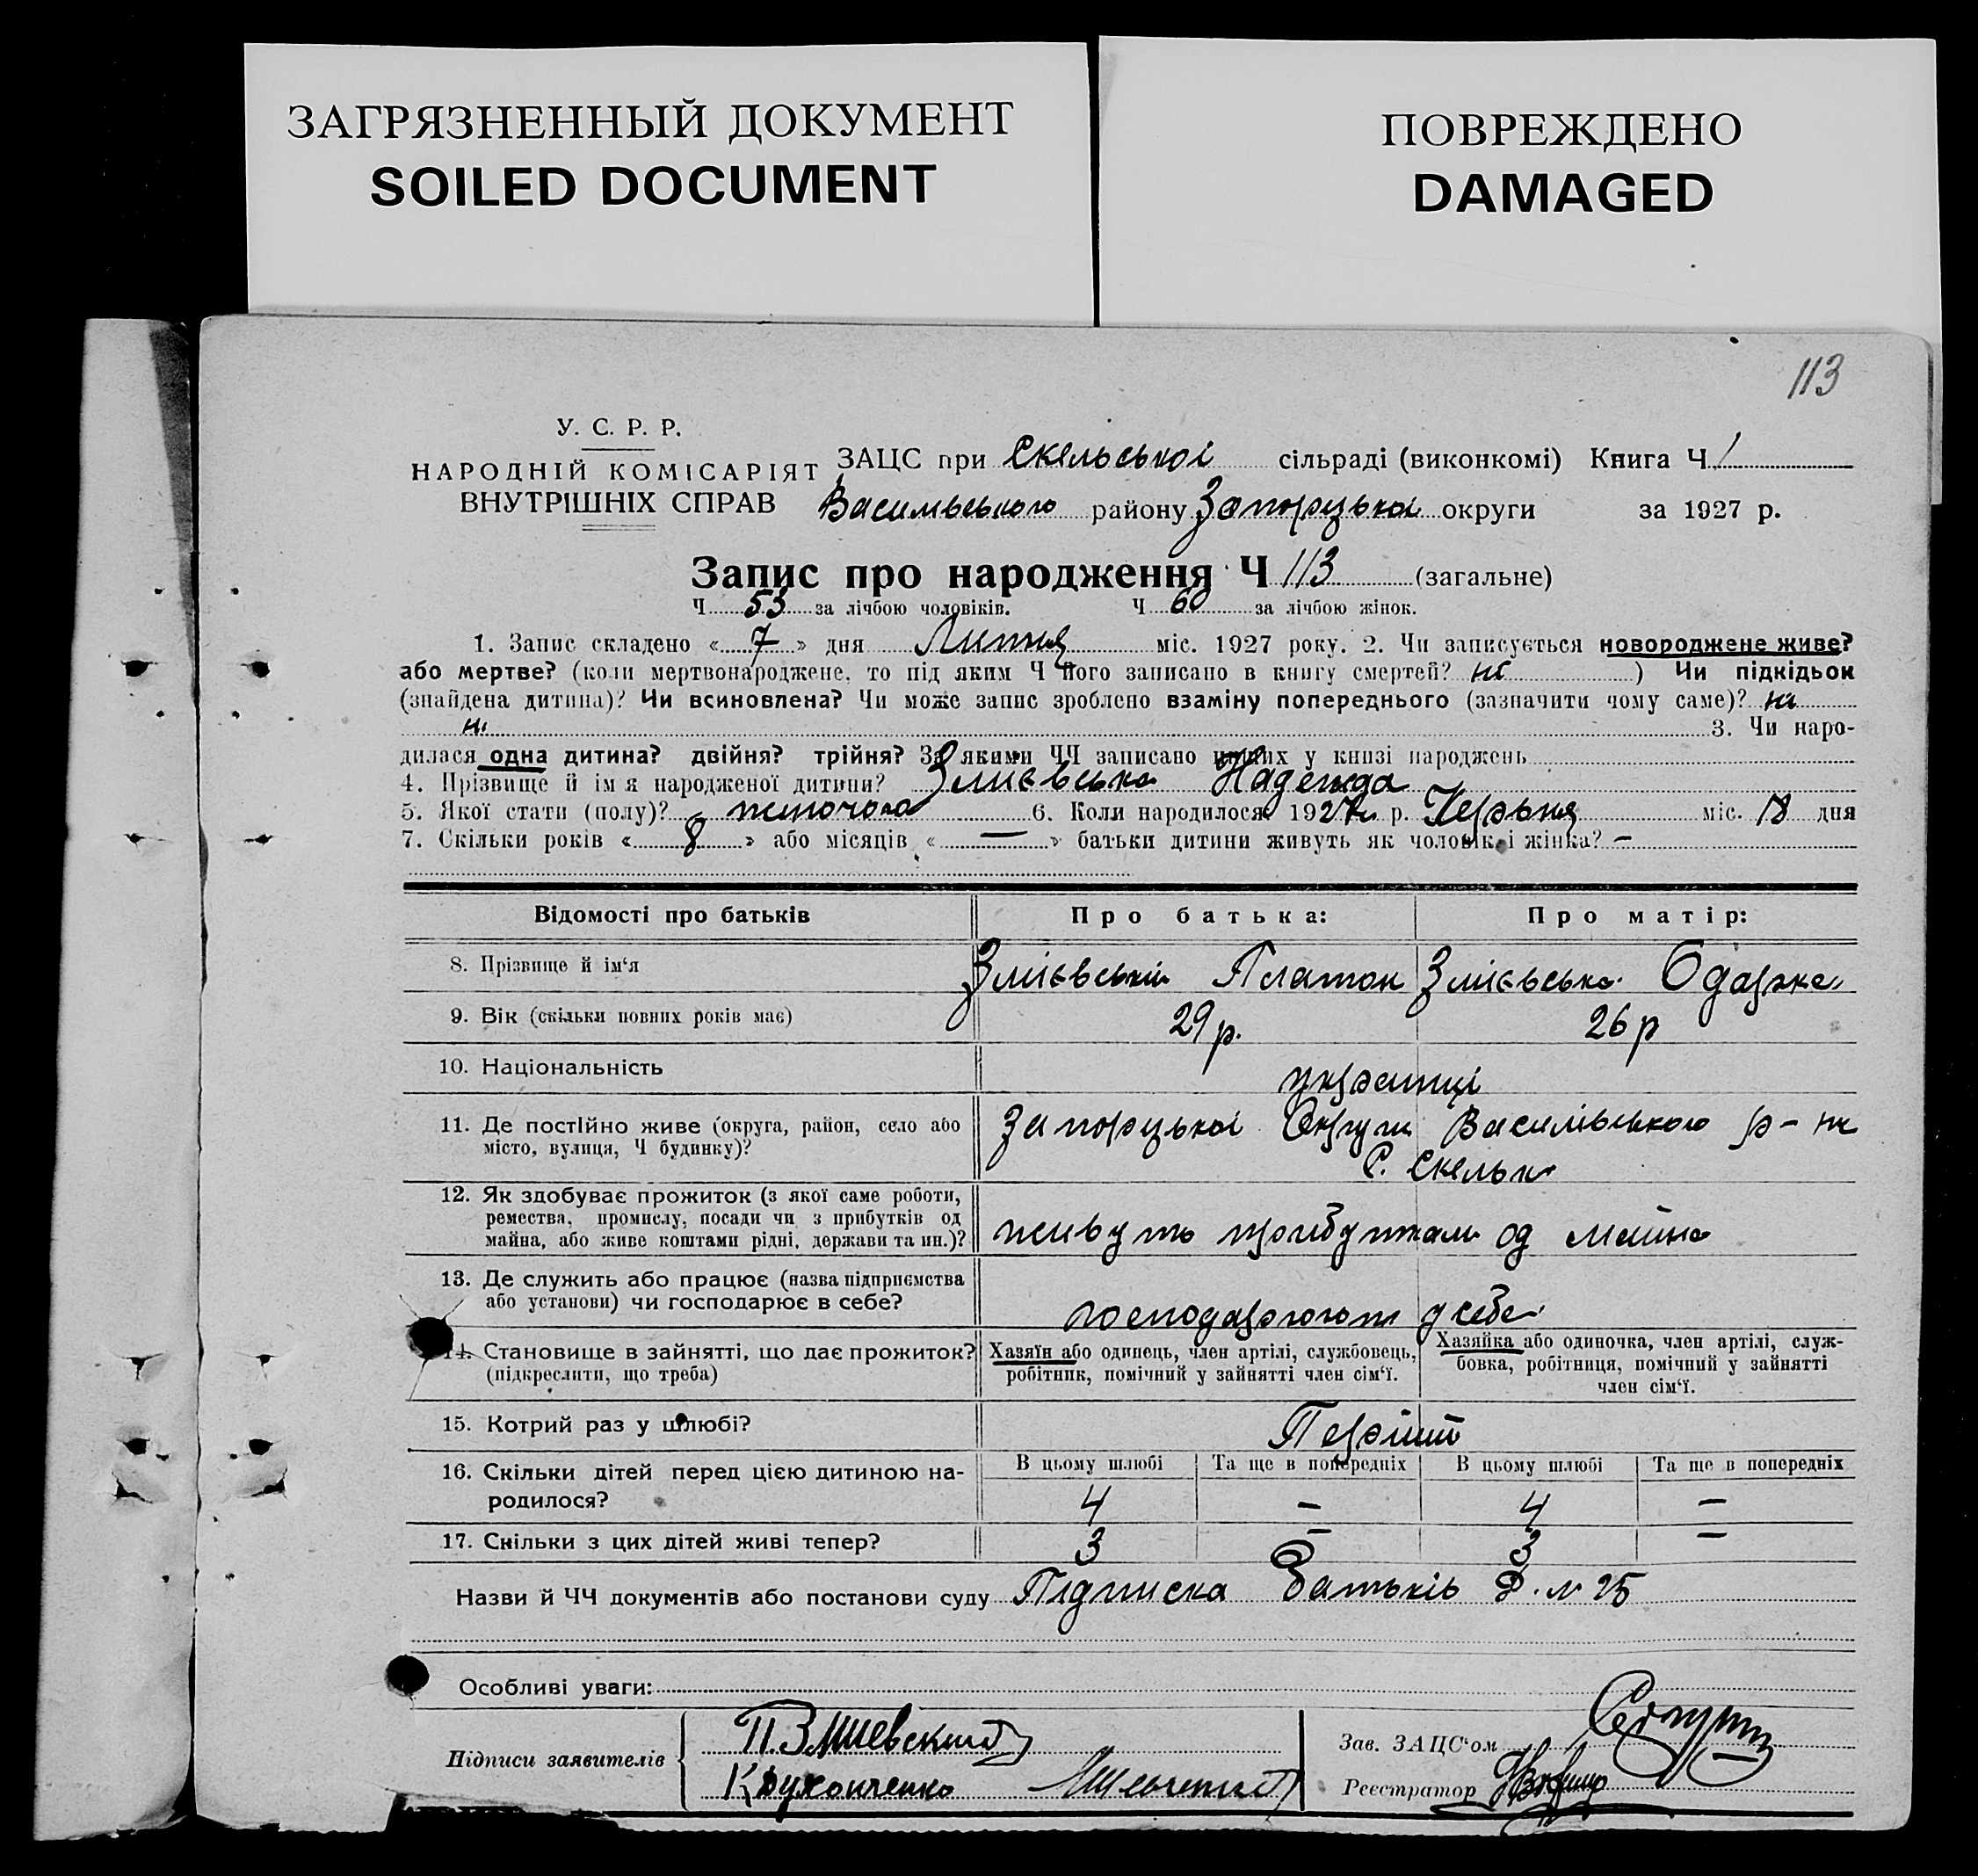 ЗАГРЯЗНЕННЫЙ ДОКУМЕНТ
SOILED DOCUMENT
ПОВРЕЖДЕНО
DAMAGED
113
У. С. Р. Р.
НАРОДНІЙ КОМІСАРІЯТ
ВНУТРІШНІХ СПРАВ
ЗАЦС при Скельської сільраді (виконкомі) Книга Ч 1
Васильвського району Запорізької округи за 1927 р.
Запис про народження Ч 113 (загальне)
Ч 53 за лічбою чоловіків. Ч 60 за лічбою жінок.
1. Запис складено « 7 » дня Липня міс. 1927 року. 2. Чи записується новороджене живе?
або мертве? (коли мертвонароджене, то під яким Ч його записано в книгу смертей? ні ) Чи підкідьок
(знайдена дитина)? Чи всиновлена? Чи може запис зроблено взаміну попереднього (зазначити чому саме)? ні
ні 3. Чи наро-
дилася одна дитина? двійня? трійня? За якими ЧЧ записано инших у книзі народжень
4. Прізвище й ім'я народженої дитини? Змієвська Надежда
5. Якої стати (полу)? жіночого 6. Коли народилося 1927 р. Червня міс. 18 дня
7. Скільки років « 8 » або місяців « — » батьки дитини живуть як чоловік і жінка? –
Відомості про батьків Про батька: Про матір:
8. Прізвище й ім'я Змієвський Платон Змієвська Одарка
9. Вік (скільки повних років має) 29 р. 26 р
10. Національність українці
11. Де постійно живе (округа, район, село або
місто, вулиця, Ч будинку)?
Запорізької Округи Василівського р-ну
С. Скельки
12. Як здобуває прожиток (з якої саме роботи,
ремества, промислу, посади чи з прибутків од
майна, або живе коштами рідні, держави та ин.)?
живуть прибутками од майна
13. Де служить або працює (назва підприємства
або установи) чи господарює в себе?
господарюют у себе
14. Становище в зайнятті, що дає прожиток?
(підкреслити, що треба)
Хазяїн або одинець, член артілі, службовець,
робітник, помічний у зайнятті член сім'ї.
Хазяйка або одиночка, член артілі, служ-
бовка, робітниця, помічний у зайнятті
член сім'ї.
15. Котрий раз у шлюбі? Перший
16. Скільки дітей перед цією дитиною на-
родилося?
В цьому шлюбі Та ще в попередніх В цьому шлюбі Та ще в попередніх
4 – 4 –
17. Скільки з цих дітей живі тепер? 3 – 3 –
Назви й ЧЧ документів або постанови суду Підписка батьків Д. № 25
Особливі уваги:
Підписи заявителів
П. Змиевский
Зав. ЗАЦС'ом
Реєстратор